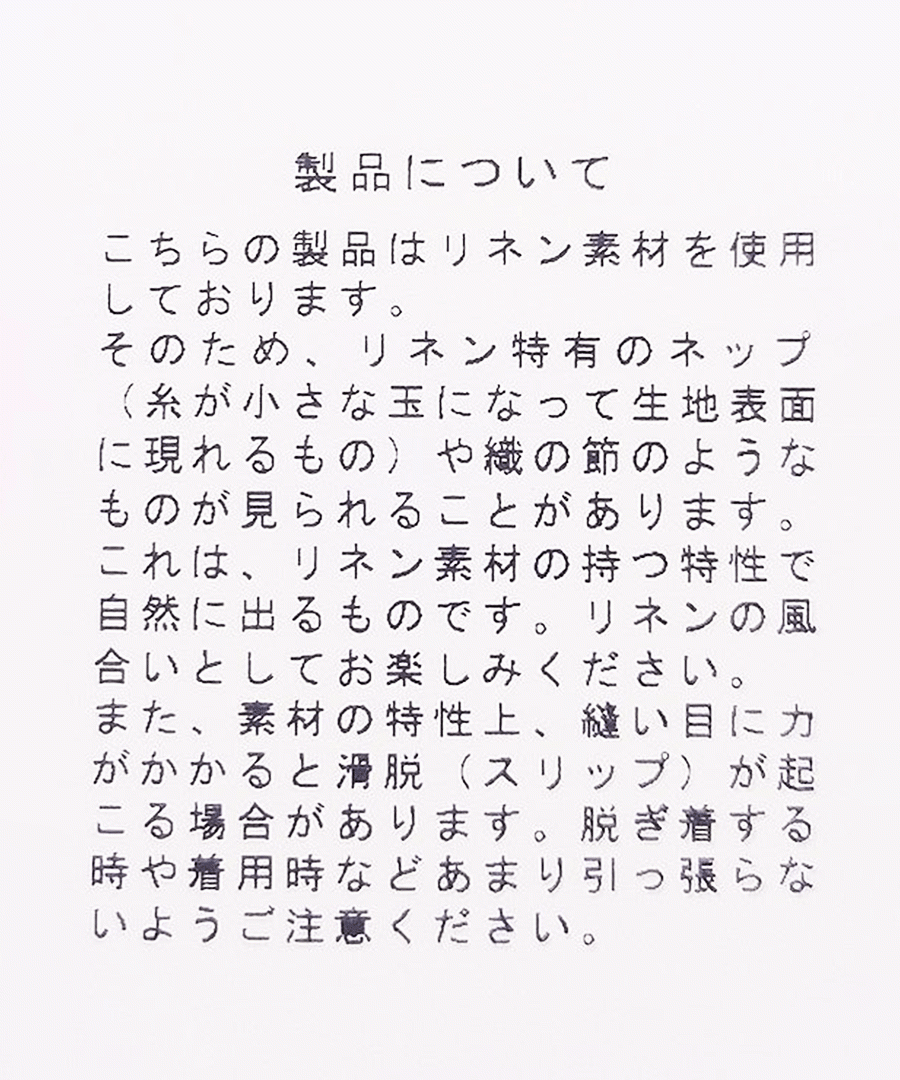 製品について
こちらの製品はリネン素材を使用
しております。
そのため、リネン特有のネップ
（糸が小さな玉になって生地表面
に現れるもの）や織の節のような
ものが見られることがあります。
これは、リネン素材の持つ特性で
自然に出るものです。リネンの風
合いとしてお楽しみください。
また、素材の特性上、縫い目に力
がかかると滑脱（スリップ）が起
こる場合があります。脱ぎ着する
時や着用時などあまり引っ張らな
いようご注意ください。